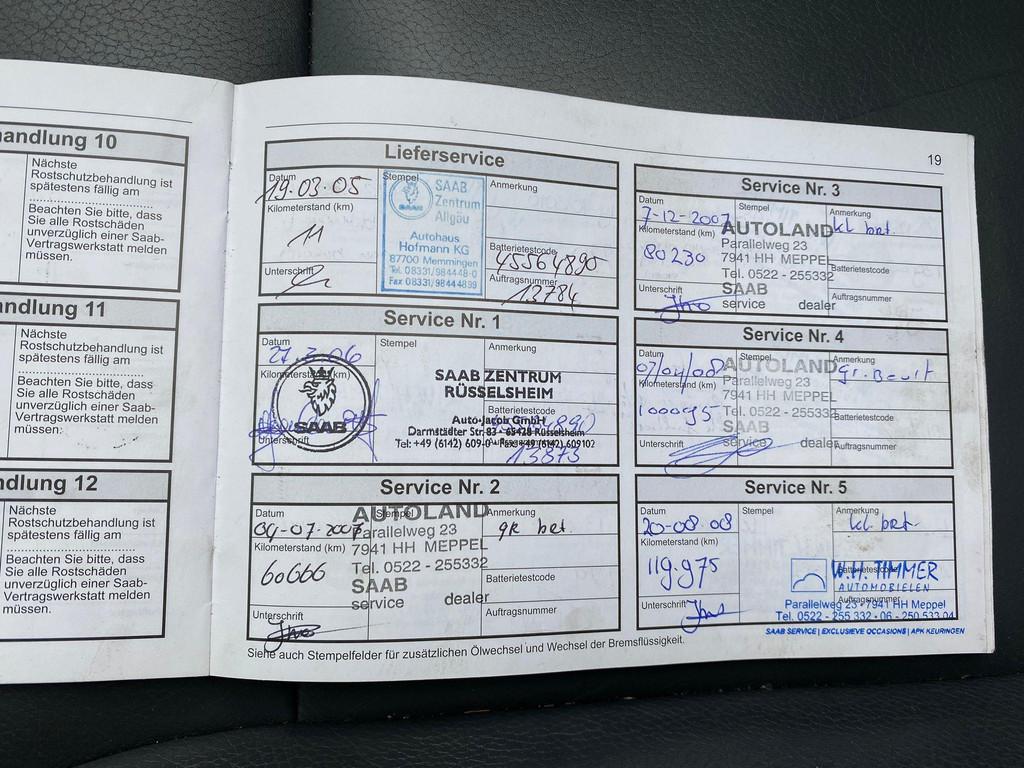 andlung 10
Nächste
Rostschutzbehandlung ist
spätestens fällig am
Beachten Sie bitte, dass
Sie alle Rostschäden
unverzüglich einer Saab-
Vertragswerkstatt melden
müssen.
ndlung 11
Nächste
Rostschutzbehandlung ist
spätestens fällig am
Beachten Sie bitte, dass
Sie alle Rostschäden
unverzüglich einer Saab-
Vertragswerkstatt melden
müssen:
dlung 12
Nächste
Rostschutzbehandlung ist
spätestens fällig am
Beachten Sie bitte, dass
Sie alle Rostschäden
unverzüglich einer Saab-
Vertragswerkstatt melden
müssen.
Lieferservice
Datum
19.03.05
Kilometerstand (km)
11
Unterschrift
Stempel
SAAB
SAAB
Zentrum
Allgäu
Autohaus
Hofmann KG
87700 Memmingen
Tel. 08331/984448-0
Fax 08331/9844899
Anmerkung
Batterietestcode
45564890
Auftragsnummer
13784
Service Nr. 1
Datum
27.3.06
Kilometerstand (km)
Unterschrift
SAAB
Stempel
Anmerkung
SAAB ZENTRUM
RÜSSELSHEIM
Batterietestcode
Auto-Jacob GmbH
Darmstädter Str. 83 - 65428 Rüsselsheim
Tel: +49 (6142) 609-0 Fax: +49 (6142) 609102
13873
Service Nr. 2
Datum
04-07-2007
Kilometerstand (km)
60666
Unterschrift
Stempel
AUTOLAND
Parallelweg 23
7941 HH MEPPEL
Tel. 0522 - 255332
SAAB
service dealer
Anmerkung
gr bet.
Batterietestcode
Auftragsnummer
Siehe auch Stempelfelder für zusätzlichen Ölwechsel und Wechsel der Bremsflüssigkeit.
19
Service Nr. 3
Datum
7-12-2007
Kilometerstand (km)
80230
Unterschrift
Stempel
AUTOLAND
Parallelweg 23
7941 HH MEPPEL
Tel. 0522 - 255332
SAAB
service dealer
Anmerkung
kl bet.
Batterietestcode
Auftragsnummer
Service Nr. 4
Datum
07/04/08
Kilometerstand (km)
100095
Unterschrift
Stempel
AUTOLAND
Parallelweg 23
7941 HH MEPPEL
Tel. 0522 - 255332
SAAB
service dealer
Anmerkung
gr. Beurt
Batterietestcode
Auftragsnummer
Service Nr. 5
Datum
20-08-08
Kilometerstand (km)
119.975
Unterschrift
Stempel
Anmerkung
kl bet.
Batterietestcode
W.H. TIMMER
AUTOMOBIELEN
Auftragsnummer
Parallelweg 23 - 7941 HH Meppel
Tel. 0522 - 255 332 - 06 - 250 533 04
SAAB SERVICE | EXCLUSIEVE OCCASIONS | APK KEURINGEN